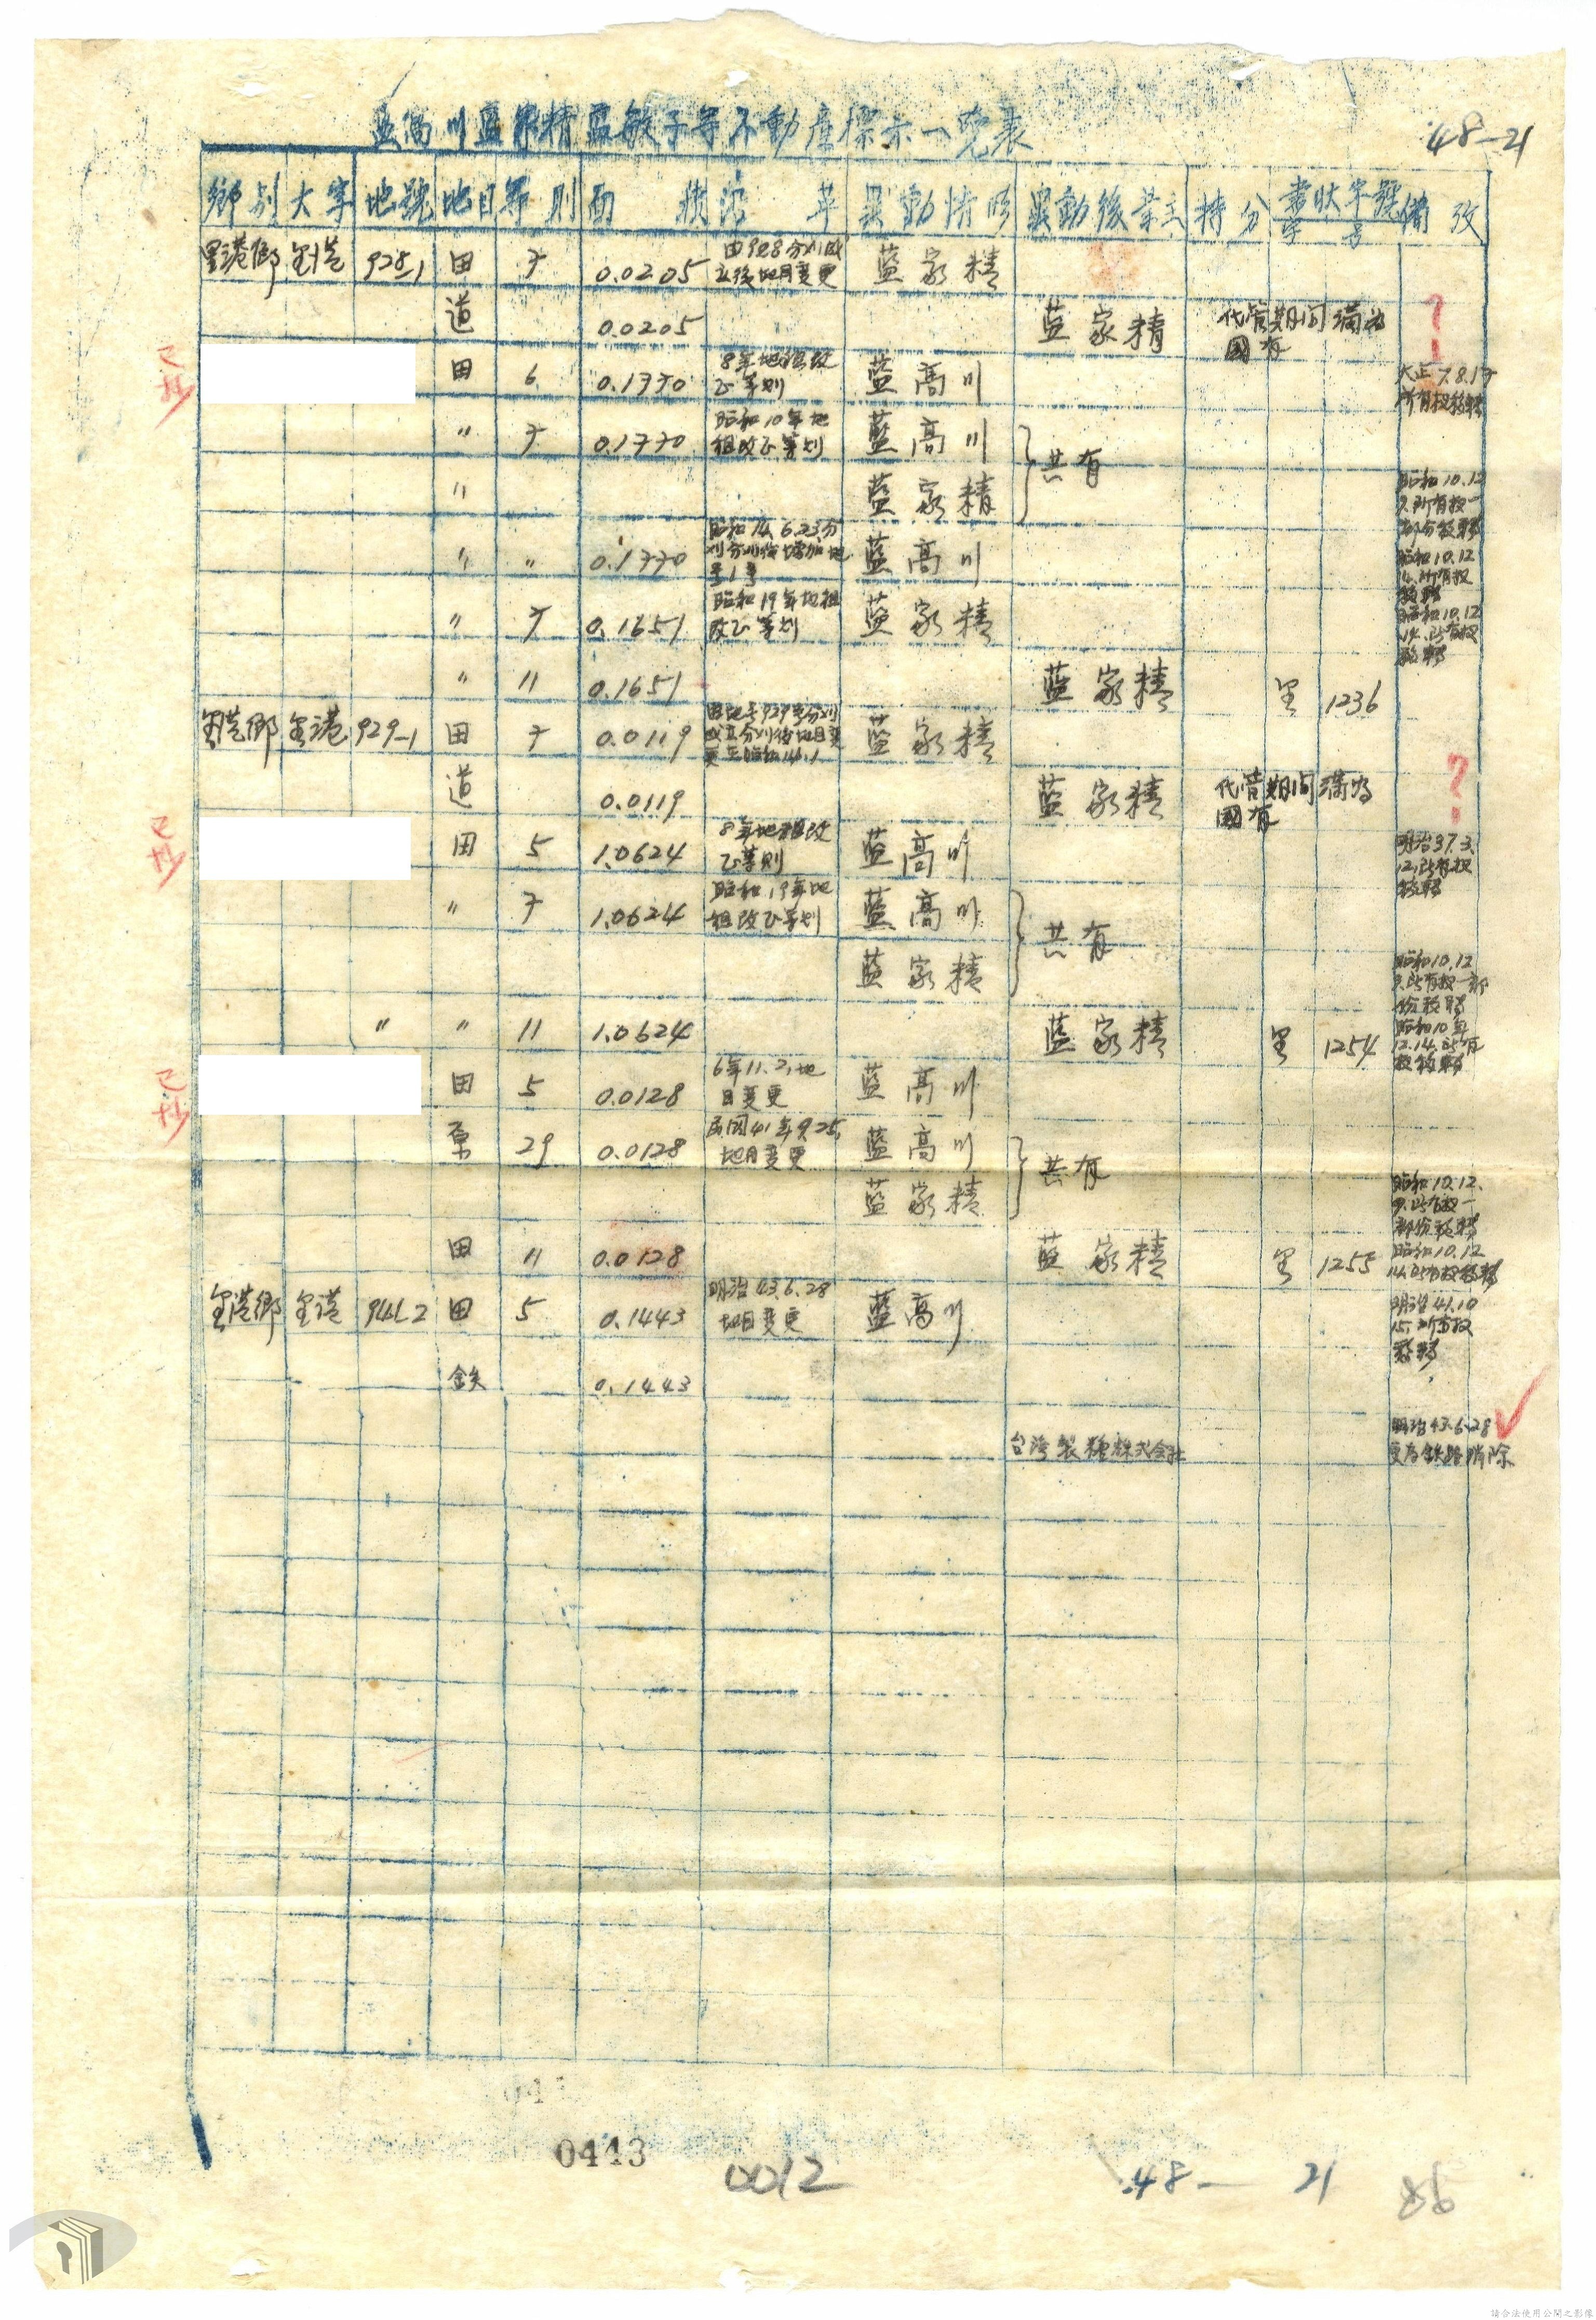 藍高川藍家精藍敏子等不動產標示一覽表
48-21
鄉別 大字 地號 地目 等則 面積 沿革 異動情形 異動後業主 持分 書狀字號 字 号 備攷
里港鄉 里港 928-1 田 7 0.0205 由928分割成立後地目変更 藍家精
道 0.0205 藍家精 代管期间満為國有 ?
已抄
田 6 0.1770 8年地租改正等則 藍高川 大正7.8.17所有权移轉
〃 7 0.1770 昭和10年地租改正等則 藍高川 共有
〃 藍家精 昭和10.12 9.所有权一部分移轉
〃 〃 0.1770 昭和14.6.23分割分割後增加地号1号 藍高川 昭和10.12 14.所有权移轉
〃 7 0.1651 昭和19年地租改正等則 藍家精 昭和10.12 14.所有权移轉
〃 11 0.1651 藍家精 里 1236
里港鄉 里港 929-1 田 7 0.0119 藍家精
道 0.0119 藍家精 代管期间満為國有 ?
已抄
田 5 1.0624 8年地租改正等則 藍高川 明治37.3.12.所有权移轉
〃 7 1.0624 昭和19年地租改正等則 藍高川 共有
藍家精 昭和10.12 9.所有权一部份移轉
〃 〃 11 1.0624 藍家精 里 1254 昭和10年12.14.所有权移轉
已抄
田 5 0.0128 6年11.2.地目变更 藍高川
原 29 0.0128 民国41年9.25.地目变更 藍高川 共有
藍家精 昭和10.12.9.所有权一部份移轉
田 11 0.0128 藍家精 里 1255 昭和10.12 14.所有权移轉
里港鄉 里港 941-2 田 5 0.1443 明治43.6.28地目变更 藍高川 明治41.10 15.所有权移轉
鉄 0.1443
台湾製糖株式会社 明治43.6.28变为鉄路消除
0443
0012
48- 21
請合法使用公開之影像